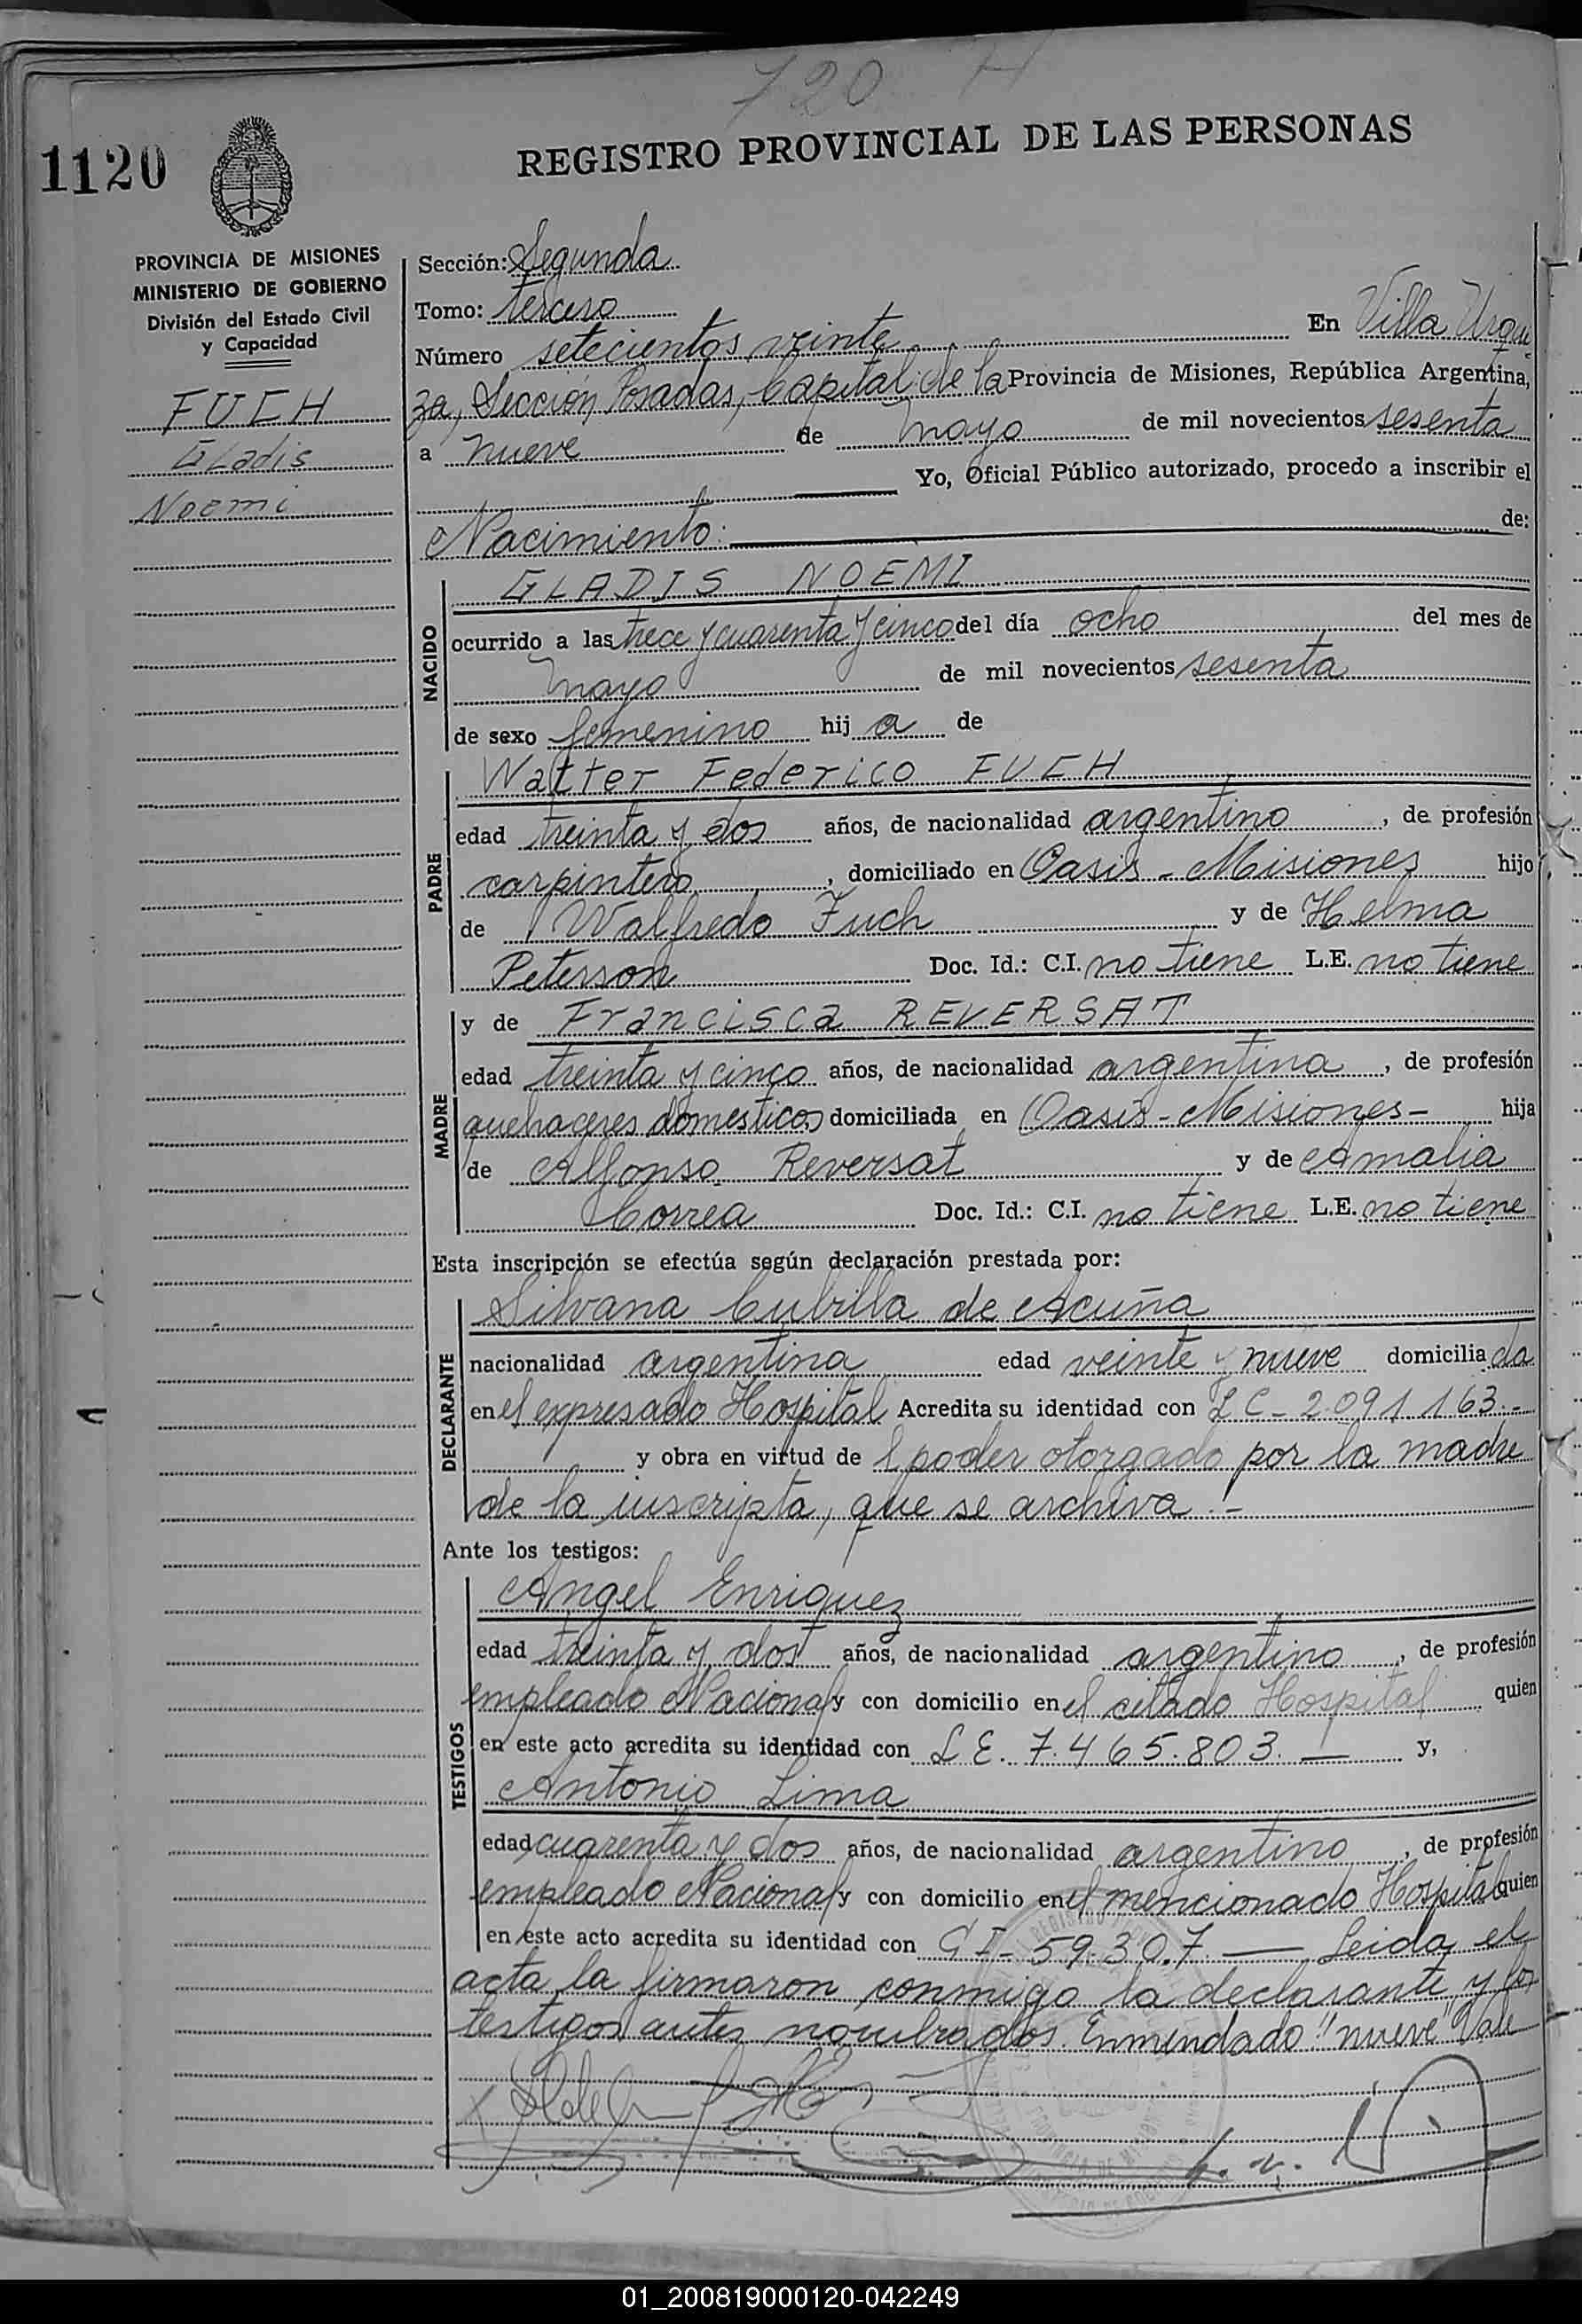 720 H
1120
REGISTRO PROVINCIAL DE LAS PERSONAS
PROVINCIA DE MISIONES
MINISTERIO DE GOBIERNO
División del Estado Civil
y Capacidad
FUCH
Gladis
Noemi
Sección: Segunda
Tomo: tercero
Número setecientos veinte En Villa Urqui
za, Sección Posadas, Capital de la Provincia de Misiones, República Argentina,
a nueve de mayo de mil novecientos sesenta
Yo, Oficial Público autorizado, procedo a inscribir el
Nacimiento: de:
NACIDO
GLADIS NOEMI
ocurrido a las trece y cuarenta y cinco del día ocho del mes de
mayo de mil novecientos sesenta
de sexo femenino hij a de
PADRE
Walter Federico FUCH
edad treinta y dos años, de nacionalidad argentino, de profesión
carpintero, domiciliado en Oasis - Misiones hijo
de Walfredo Fuch y de Helma
Peterson Doc. Id.: C.I. no tiene L.E. no tiene
MADRE
y de Francisca REVERSAT
edad treinta y cinco años, de nacionalidad argentina, de profesión
quehaceres domesticos domiciliada en Oasis - Misiones - hija
de Alfonso Reversat y de Amalia
Correa Doc. Id.: C.I. no tiene L.E. no tiene
Esta inscripción se efectúa según declaración prestada por:
DECLARANTE
Silvana Cubilla de Acuña
nacionalidad argentina edad veinte y nueve domicilia da
en el expresado Hospital Acredita su identidad con L C - 2.091.163.-
y obra en virtud de l poder otorgado por la madre
de la inscripta, que se archiva.-
Ante los testigos:
TESTIGOS
Angel Enriquez
edad treinta y dos años, de nacionalidad argentino, de profesión
empleado Nacional y con domicilio en el citado Hospital quien
en este acto acredita su identidad con L E. 7.465.803. — y,
Antonio Lima
edad cuarenta y dos años, de nacionalidad argentino, de profesión
empleado Nacional y con domicilio en el mencionado Hospital quien
en este acto acredita su identidad con C I - 59.307. — Leida el
acta la firmaron conmigo la declarante y los
testigos antes nombrados. Enmendado "nueve" Vale
01_200819000120-042249